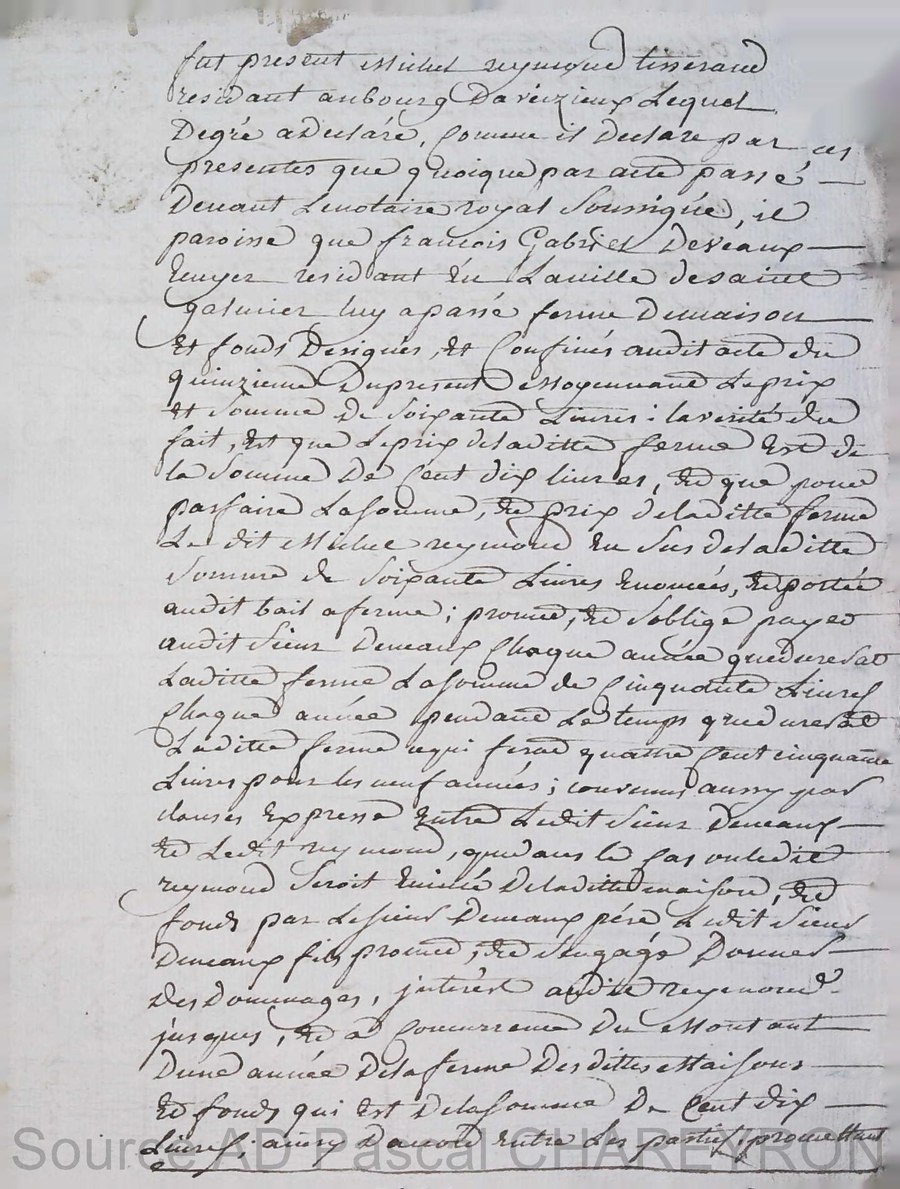 fut present Michel reymond tisserand
residant au bourg Daveizieux Lequel
Degré a Declaré, Comme il Declare par ces
presentes que quoique par acte passé
Devant Le notaire royal Soussigné, il
paroisse que francois Gabriel Deveaux
Ecuyer residant En La ville de saint
galmier luy a passé ferme De maison
Et fonds Designés, Et Confinés audit acte du
quinzieme Du present Moyennant Le prix
Et Somme De Soixante Livres : la verité du
fait, Est que Le prix de laditte ferme Est de
la Somme De Cent dix livres, Et que pour
parfaire La somme, Et prix de laditte ferme
Le dit Michel reymond En Sus de laditte
Somme de Soixante Livres Enoncées, Et portée
audit bail a ferme ; promet, Et soblige payer
audit Sieur Deveaux Chaque année que durera
Laditte ferme La somme de Cinquante Livres
Chaque année pendant Le temps que durera
Laditte ferme ce qui ferat quattre Cent cinquante
Livres pour les neuf années ; convenu aussy par
clauses Expresse Entre Ledit Sieur Deveaux
Et Ledit reymond, que dans le Cas ou ledit
reymond Seroit Evincé De laditte maison, Et
fonds par Le sieur Deveaux père Ledit Sieur
Deveaux fils promet, Et sengage Donner
Des Dommages, jnterêt audit reymond
jusques, Et a Concurrence Du Montant
Dune année De la ferme Des dittes Maisons
Et fonds qui Est De la somme De Cent dix
Livres ; ainsy Daccord Entre Les parties, promettant
Source AD Pascal CHAREYRON